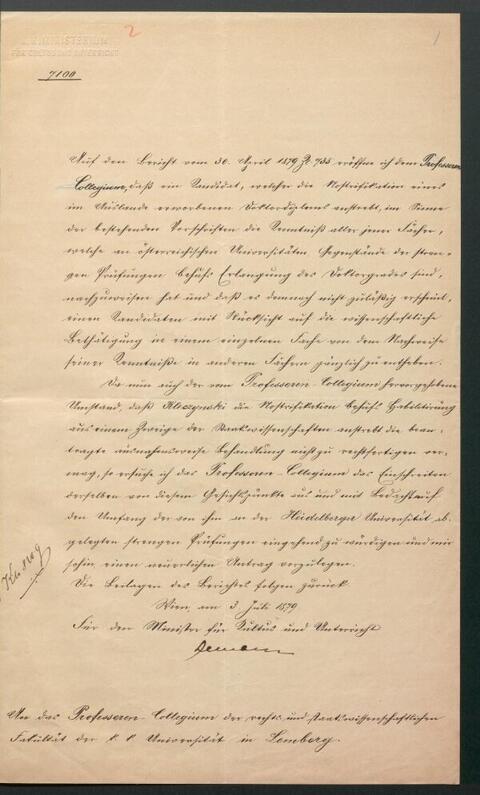 2
1
K.K. MINISTERIUM
FÜR CULTUS UND UNTERRICHT
7100
Auf den Bericht vom 30. April 1879 Z. 755 eröffne ich dem Professoren
Collegium, daß ein Kandidat, welcher die Nostrifikation eines
im Auslande erworbenen Doktordiploms anstrebt, im Sinne
der bestehenden Vorschriften die Kenntniß aller jener Fächer,
welche an österreichischen Universitäten Gegenstände der stren-
gen Prüfungen behufs Erlangung des Doktorgrades sind,
nachzuweisen hat und daß es demnach nicht zuläßig erscheint,
einen Kandidaten mit Rücksicht auf die wissenschaftliche
Bethätigung in einem einzelnen Fache von dem Nachweise
seiner Kenntniße in anderen Fächern gänzlich zu entheben.
Da nun auch der vom Professoren-Collegium hervorgehobene
Umstand, daß Kleczynski die Nostrifikation behufs Habilitirung
aus einem Zweige der Staatswissenschaften anstrebt die bean-
tragte ausnahmsweise Behandlung nicht zu rechtfertigen ver-
mag, so ersuche ich das Professoren-Collegium das Einschreiten
desselben von diesem Gesichtspunkte aus und mit Bedachtauf
den Umfang der von ihm an der Heidelberger Universität ab-
gelegten strengen Prüfungen eingehend zu würdigen und mir
sohin einen neuerlichen Antrag vorzulegen.
Die Beilagen des Berichtes folgen zurück
Wien, am 3. Juli 1879
Für den Minister für Kultus und Unterricht
An das Professoren-Collegium der rechts- und staatswissenschaftlichen
Fakultät der k. k. Universität in Lemberg.